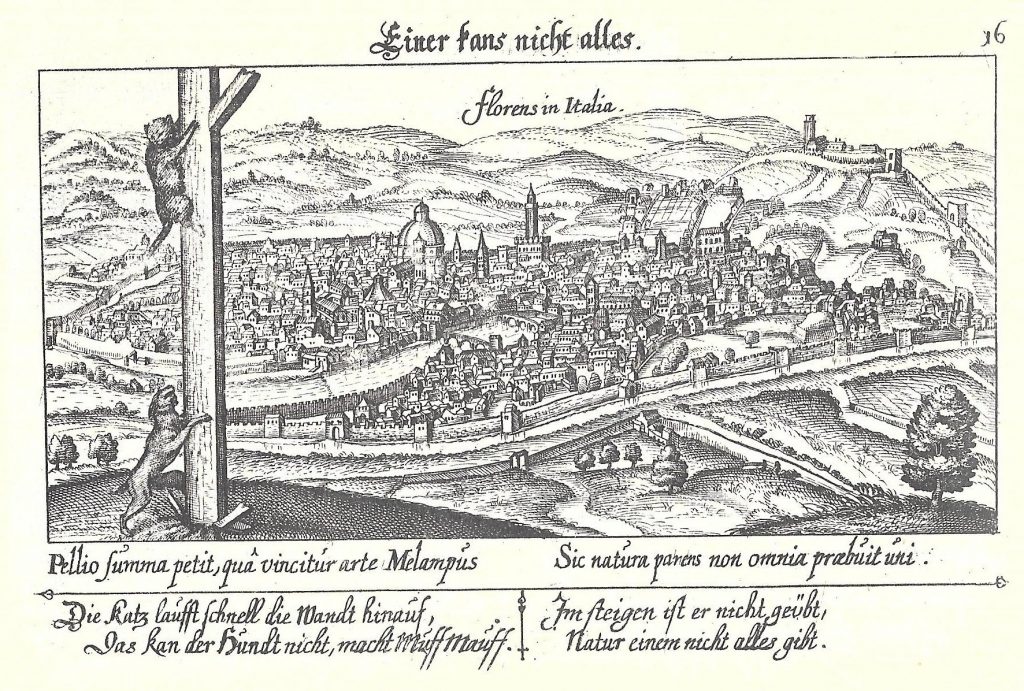 Einer kans nicht alles.
16
Florens in Italia.
Pellio summa petit, quâ vincitur arte Melampus
Sic natura parens non omnia præbuit uni.
Die Katz laufft schnell die Wandt hinauf,
Das kan der Hundt nicht, macht Muff Mauff.
Im steigen ist er nicht geübt,
Natur einem nicht alles gibt.